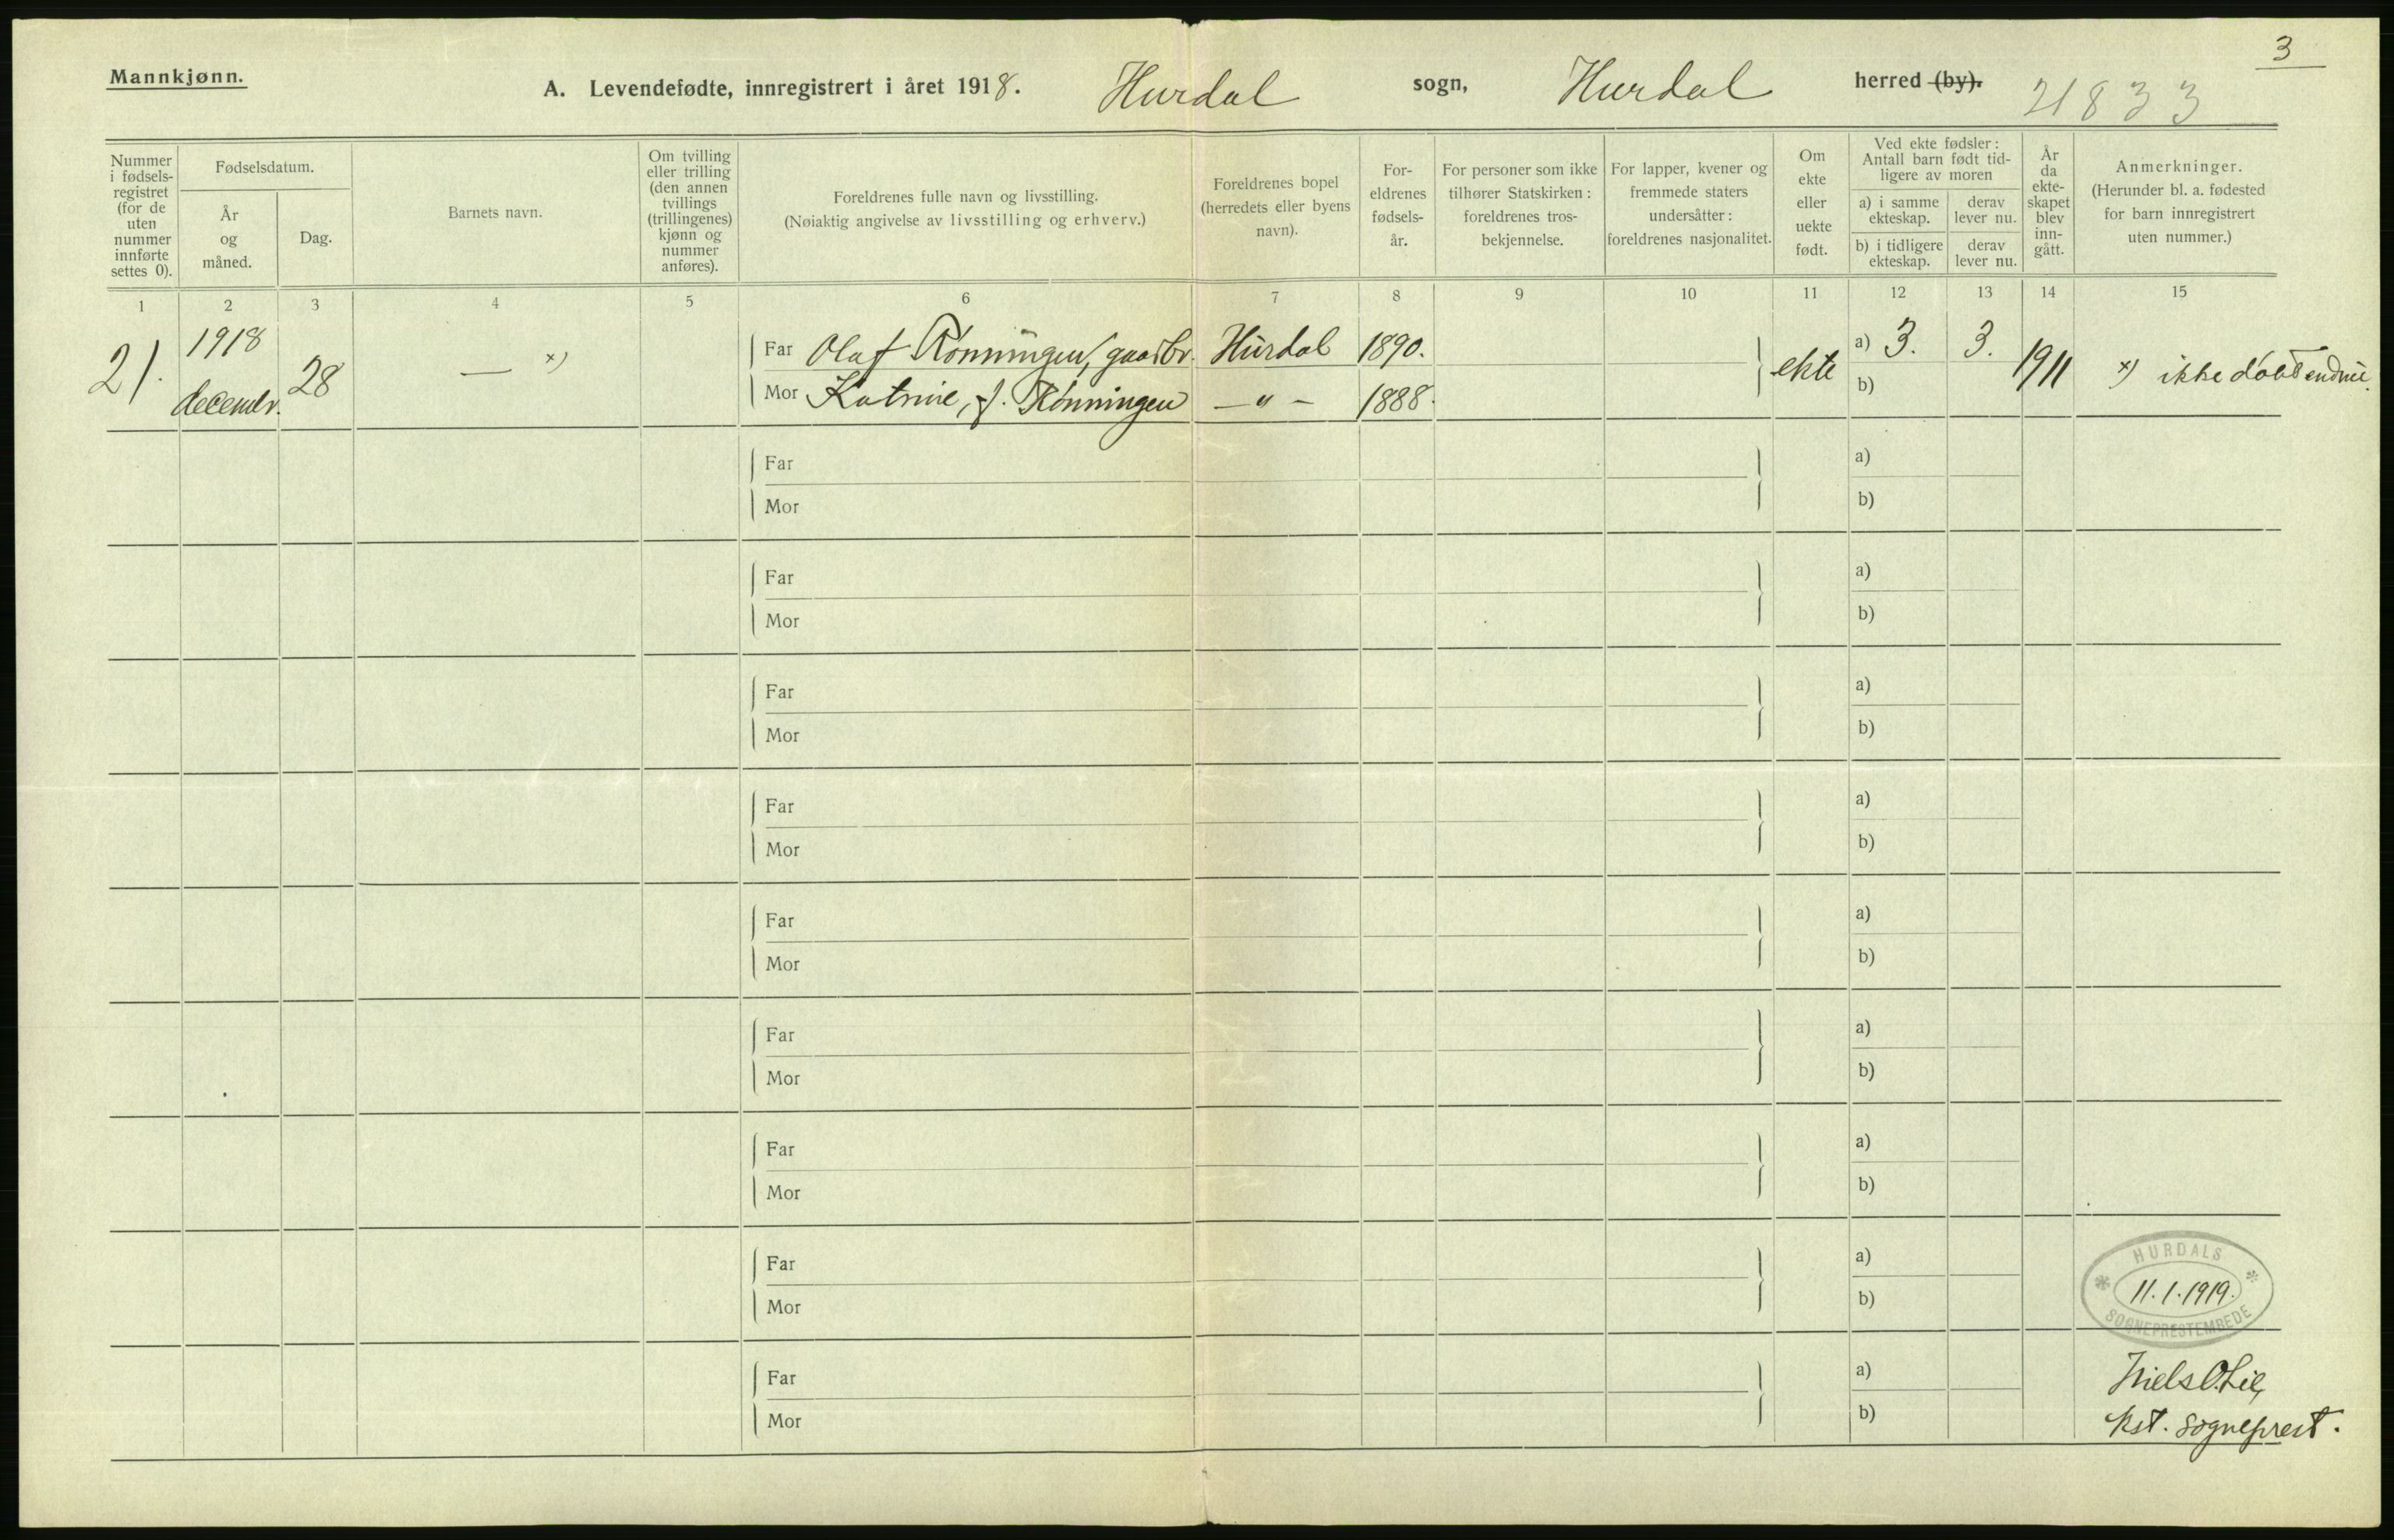 3
Mannkjønn.
A. Levendefødte, innregistrert i året 1918. Hurdal sogn, Hurdal herred (by). 21833
Nummer i fødsels-registret (for de uten nummer innførte settes 0).
Fødselsdatum.
År og måned.
Dag.
Barnets navn.
Om tvilling eller trilling (den annen tvillings (trillingenes) kjønn og nummer anføres).
Foreldrenes fulle navn og livsstilling.
(Nøiaktig angivelse av livsstilling og erhverv.)
Foreldrenes bopel (herredets eller byens navn).
For-eldrenes fødsels-år.
For personer som ikke tilhører Statskirken: foreldrenes tros-bekjennelse.
For lapper, kvener og fremmede staters undersåtter: foreldrenes nasjonalitet.
Om ekte eller uekte født.
Ved ekte fødsler: Antall barn født tid-ligere av moren
a) i samme ekteskap.
derav lever nu.
b) i tidligere ekteskap.
derav lever nu.
År da ekte-skapet blev inn-gått.
Anmerkninger.
(Herunder bl. a. fødested for barn innregistrert uten nummer.)
1 2 3 4 5 6 7 8 9 10 11 12 13 14 15
21. 1918 decembr. 28 — x)
Far Olaf Rønningen, gaardbr. Hurdal 1890.
Mor Katrine, f. Rønningen — " — 1888.
ekte a) 3. 3. 1911 x) ikke døbt endnu.
b)
Far a)
Mor b)
Far a)
Mor b)
Far a)
Mor b)
Far a)
Mor b)
Far a)
Mor b)
Far a)
Mor b)
Far a)
Mor b)
Far a)
Mor b)
Far a)
Mor b)
HURDALS
11.1.1919.
SOGNEPRESTEMBEDE
Niels O. Lie,
kst. sogneprest.